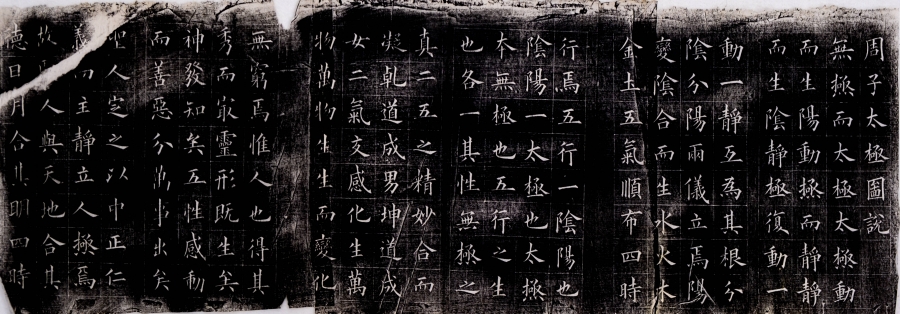 周子太極圖說
無極而太極太極動
而生陽動極而靜靜
而生陰靜極復動一
動一靜互為其根分
陰分陽兩儀立焉陽
變陰合而生水火木
金土五氣順布四時
行焉五行一陰陽也
陰陽一太極也太極
本無極也五行之生
也各一其性無極之
真二五之精妙合而
凝乾道成男坤道成
女二氣交感化生萬
物萬物生生而變化
無窮焉惟人也得其
秀而最靈形既生矣
神發知矣五性感動
而善惡分萬事出矣
聖人定之以中正仁
義而主靜立人極焉
故人與天地合其
德日月合其明四時